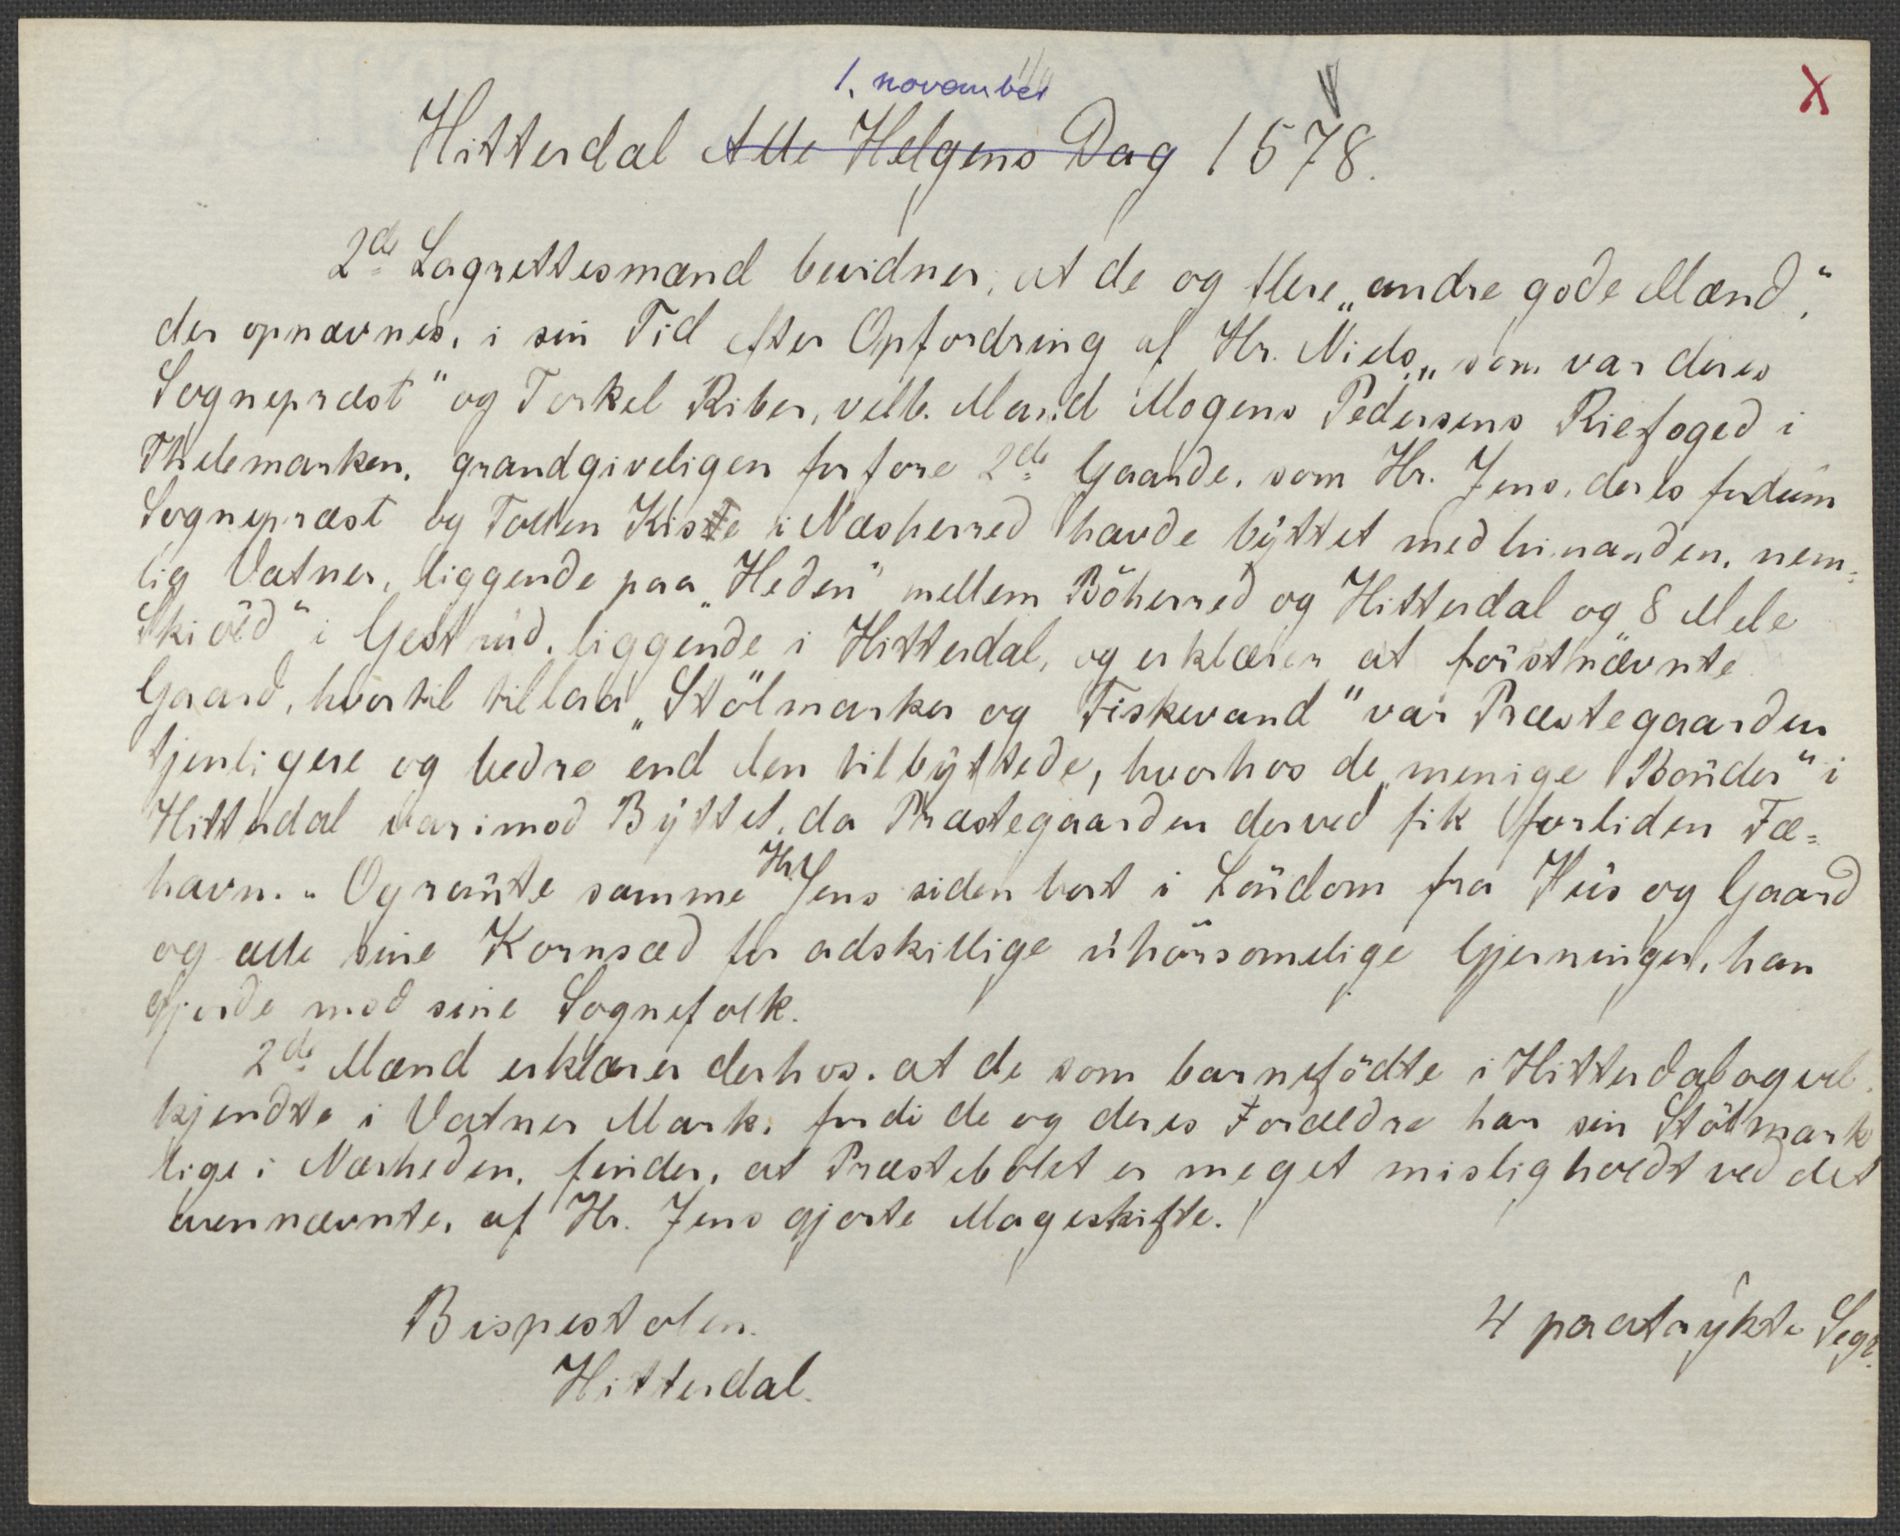 1. november
X
Hitterdal Alle Helgens Dag 1578.
2de Lagrettesmænd bevidner, at de og flere „andre gode Mænd“,
der opnævnes, i sin Tid efter Opfordring af Hr. Niels, „som var deres
Sognepræst“ og Torkel Riber, velb. Mand Mogens Pedersens Riefoged i
Thelemarken, grandgiveligen forfore 2de Gaarde, som Hr. Jens, deres fordum
Sognepræst og Tollen Kiste i Næsherred havde byttet med hinanden, nem=
lig Vatner, liggende paa „Heden“ mellem Böherred og Hitterdal og 8 Mele
Skiöd“ i Gestrud, liggende i Hitterdal, og erklærer at förstnævnte
Gaard, hvortil tillaa „Stölmarker og Fiskevand“ var Præstegaarden
tjenligere og bedre end den tilbyttede, hvorhos de „menige Bönder“ i
Hitterdal var imod Byttet, da Præstegaarden derved fik forliden Fæ=
havn. „Og römte samme Hr. Jens siden bort i Löndom fra Hus og Gaard
og alle sine Kornsæd for adskillige uhörsomelige Gjerninger, han
gjorde mod sine Sognefolk.
2de Mænd erklærer derhos, at de som barnefödte i Hitterdal og vel
kjendte i Vatner Mark, fordi de og deres Forældre har sin Stölmark
lige i Nærheden, finder, at Præstebolet er meget misligholdt ved det
ovennævnte, af Hr. Jens gjorte Mageskifte.
Bispestolen.
Hitterdal.
4 paatrykte Segl.